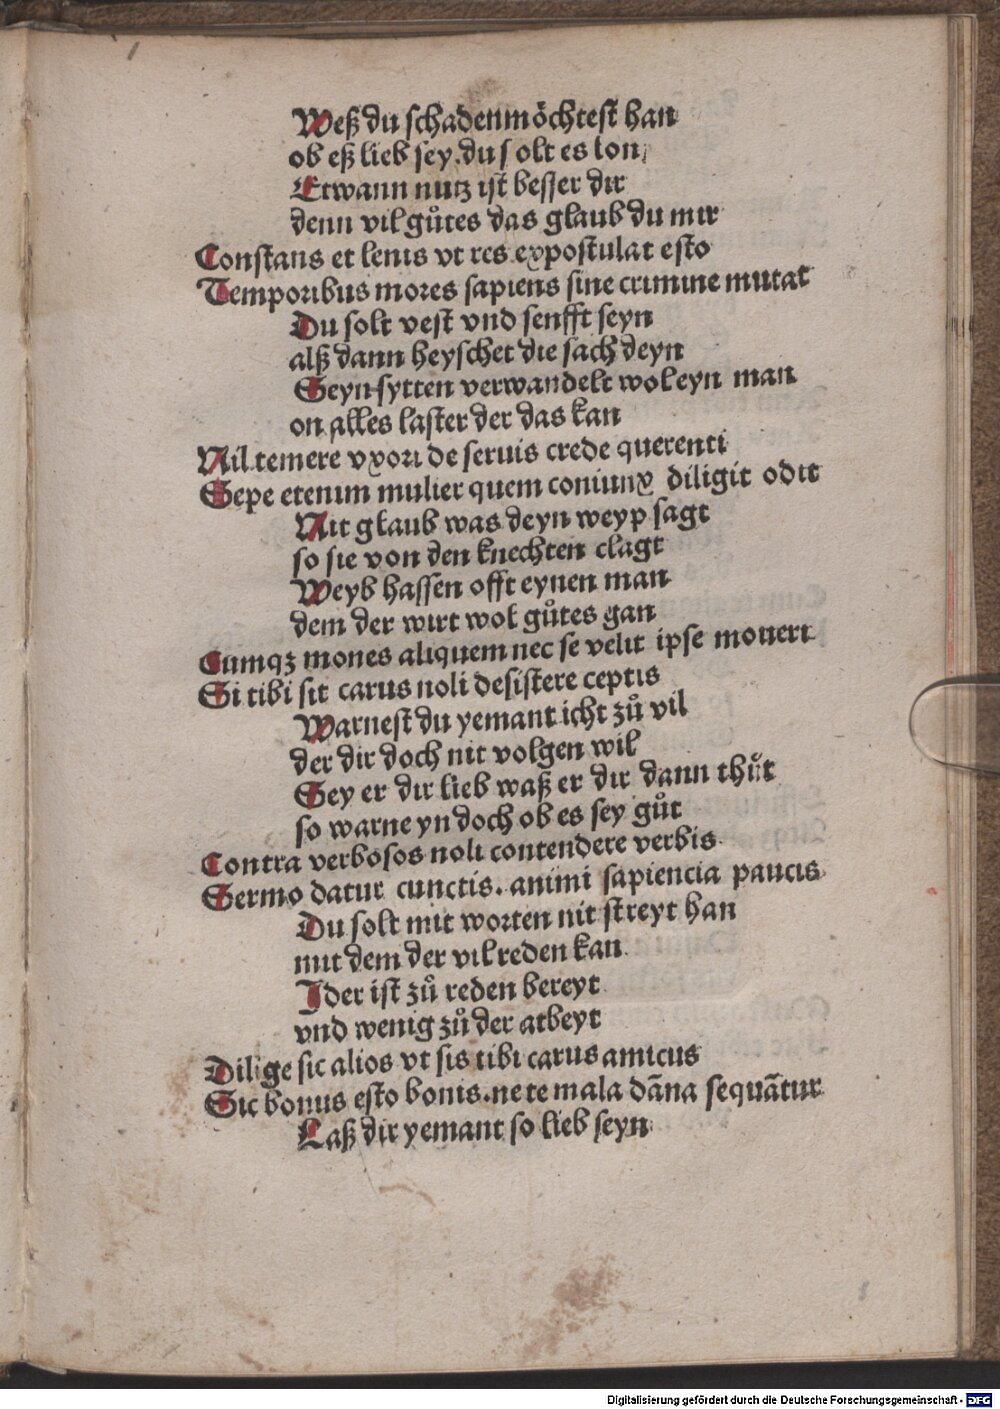 Weß du schaden möchtest han
ob eß lieb sey. du solt es lon
Etwann nutz ist besser dir
denn vil gůtes das glaub du mir
Constans et lenis vt res expostulat esto
Temporibus mores sapiens sine crimine mutat
Du solt vest vnd senfft seyn
alß dann heyschet die sach deyn
Seyn sytten verwandelt wol eyn man
on alles laster der das kan
Nil temere vxori de seruis crede querenti
Sepe etenim mulier quem coniunx diligit odit
Nit glaub was deyn weyp sagt
so sie von den knechten clagt
Weyb hassen offt eynen man
dem der wirt wol gůtes gan
Cumqꝫ mones aliquem nec se velit ipse moueri
Si tibi sit carus noli desistere ceptis
Warnest du yemant icht zů vil
der dir doch nit volgen wil
Sey er dir lieb waß er dir dann thůt
so warne yn doch ob es sey gůt
Contra verbosos noli contendere verbis
Sermo datur cunctis. animi sapiencia paucis
Du solt mit worten nit streyt han
mit dem der vil reden kan
Ider ist zů reden bereyt
vnd wenig zů der arbeyt
Dilige sic alios vt sis tibi carus amicus
Sic bonus esto bonis. ne te mala dāna sequātur
Laß dir yemant so lieb seyn
Digitalisierung gefördert durch die Deutsche Forschungsgemeinschaft - DFG